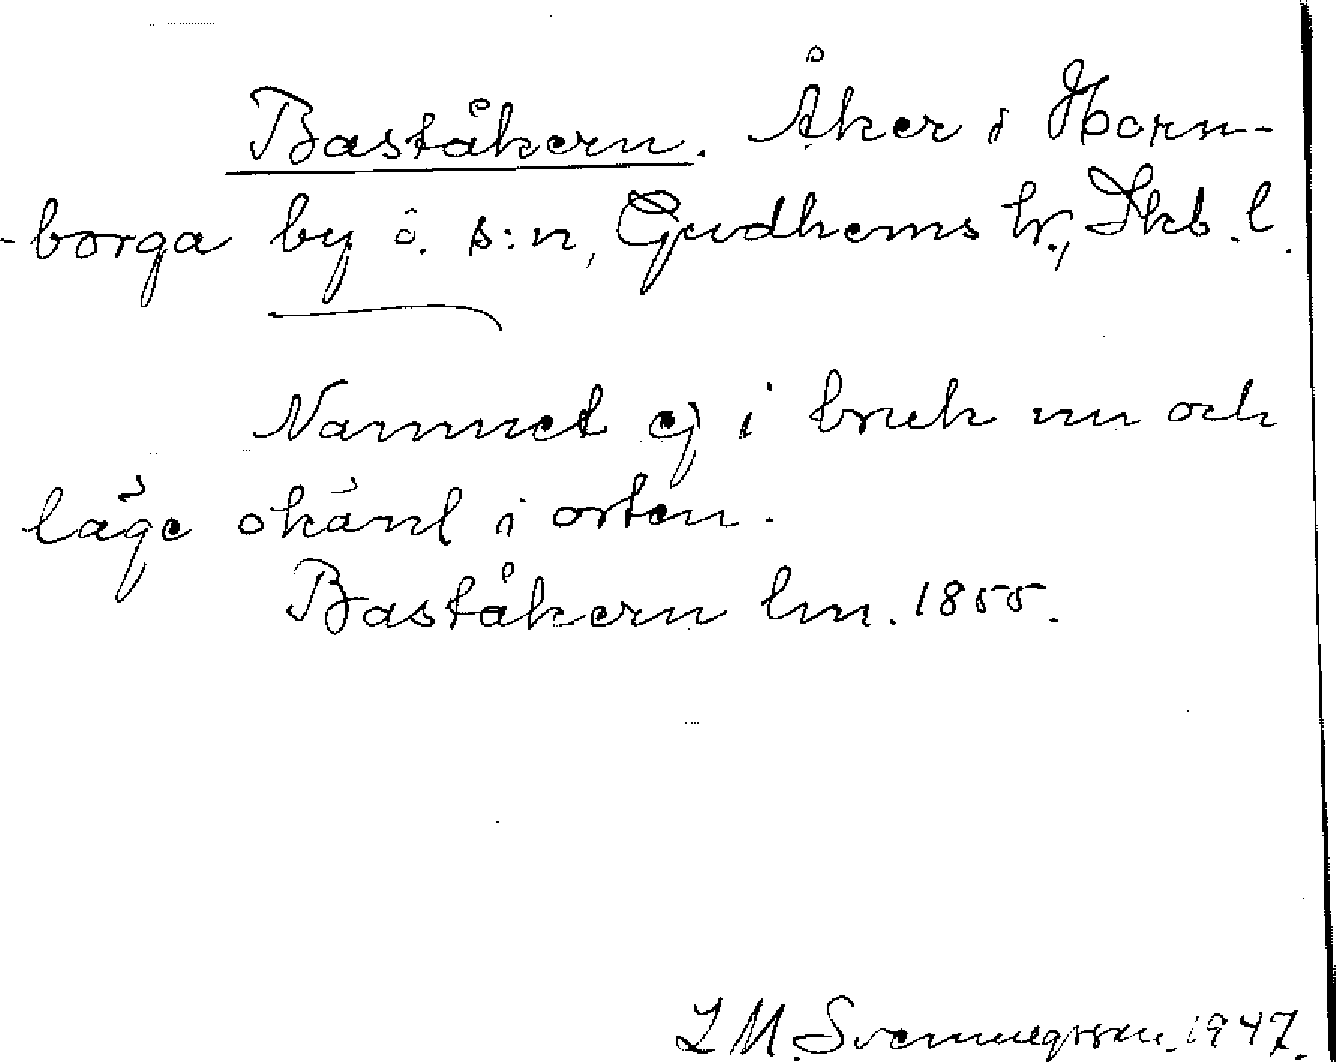 Baståkern. Åker i Horn-
-borga by o. s:n, Gudhems hr., Skb. l.
Namnet ej i bruk nu och
läge okänt i orten.
Baståkern lm. 1855.
L M. Svenungsson. 1947.